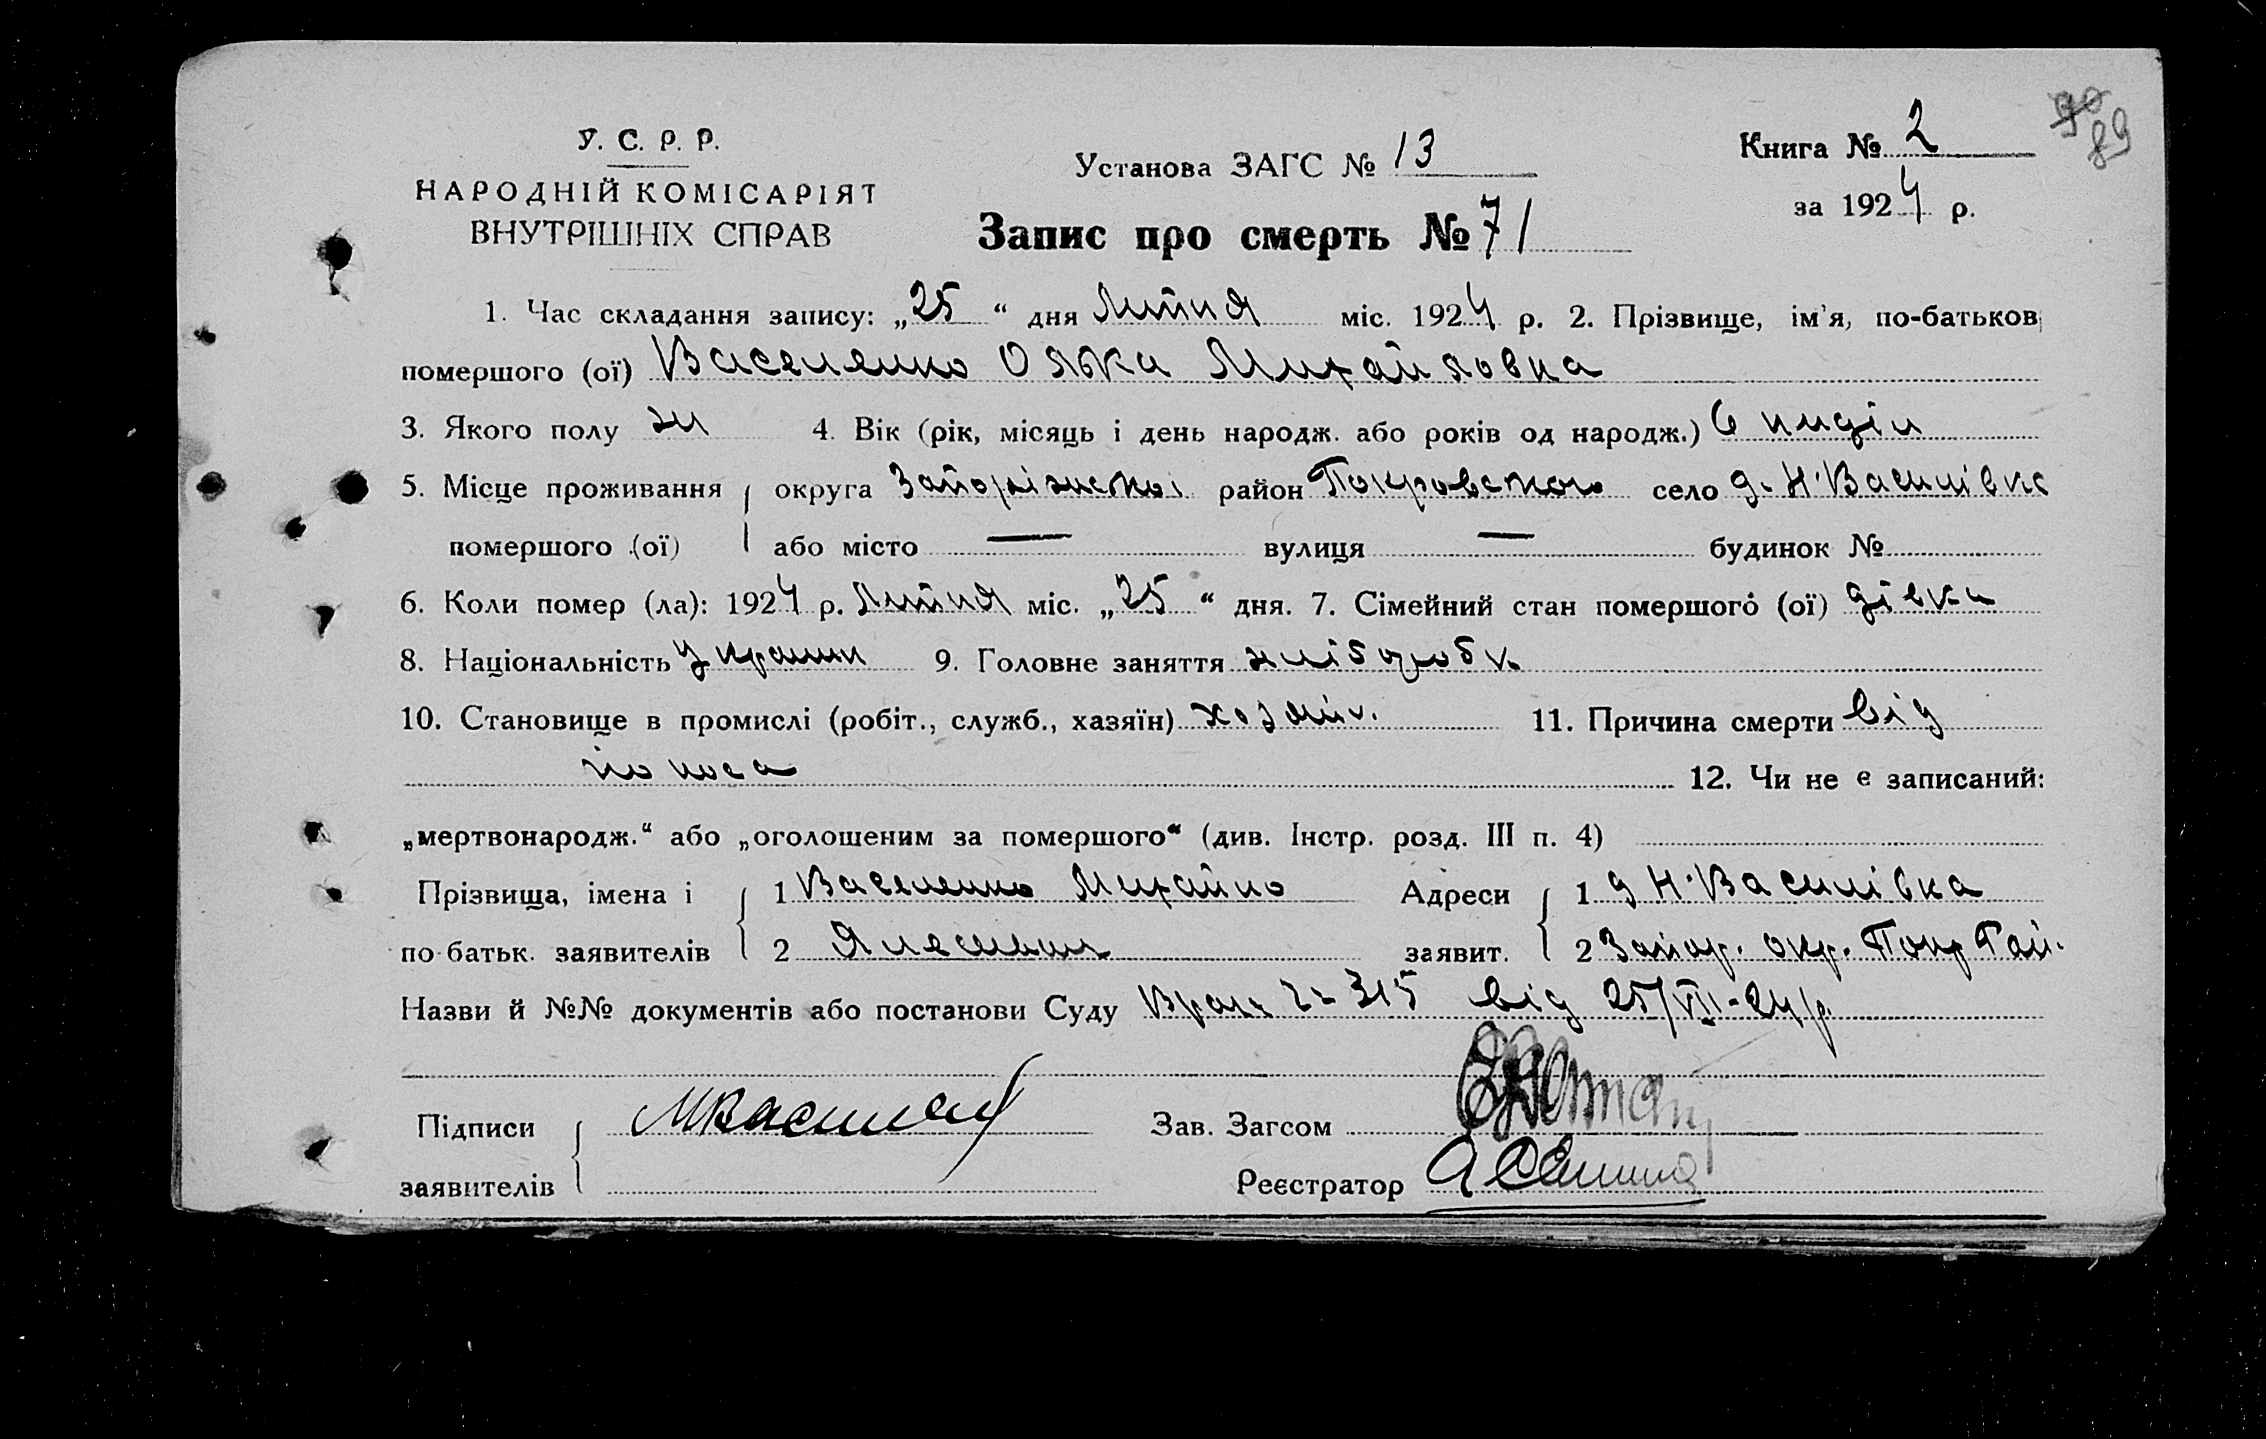 У. С. Р. Р.
НАРОДНІЙ КОМІСАРІЯТ
ВНУТРІШНІХ СПРАВ
Установа ЗАГС № 13
Книга № 2
90
89
за 1924 р.
Запис про смерть № 71
1. Час складання запису: „25“ дня Липня міс. 1924 р. 2. Прізвище, ім'я, по-батькові
помершого (ої) Василенко Олька Михайловна
3. Якого полу ж 4. Вік (рік, місяць і день народж. або років од народж.) 6 ниділ
5. Місце проживання округа Запоріжської район Покровского село д. Н. Василівка
помершого (ої) або місто — вулиця — будинок №
6. Коли помер (ла): 1924 р. Липня міс. „25“ дня. 7. Сімейний стан помершого (ої) дівка
8. Національність Украинк 9. Головне заняття хлібороб
10. Становище в промислі (робіт., служб., хазяїн) хозяін. 11. Причина смерти від
поноса 12. Чи не є записаний:
„мертвонародж.“ або „оголошеним за помершого“ (див. Інстр. розд. III п. 4)
Прізвища, імена і 1 Василенко Михайло Адреси 1 д Н. Василівка
по-батьк. заявителів 2 заявит. 2 Запор. окр. Покр Рай.
Назви й №№ документів або постанови Суду 315 від 25/VII-24 р.
Підписи Зав. Загсом
заявителів Реєстратор